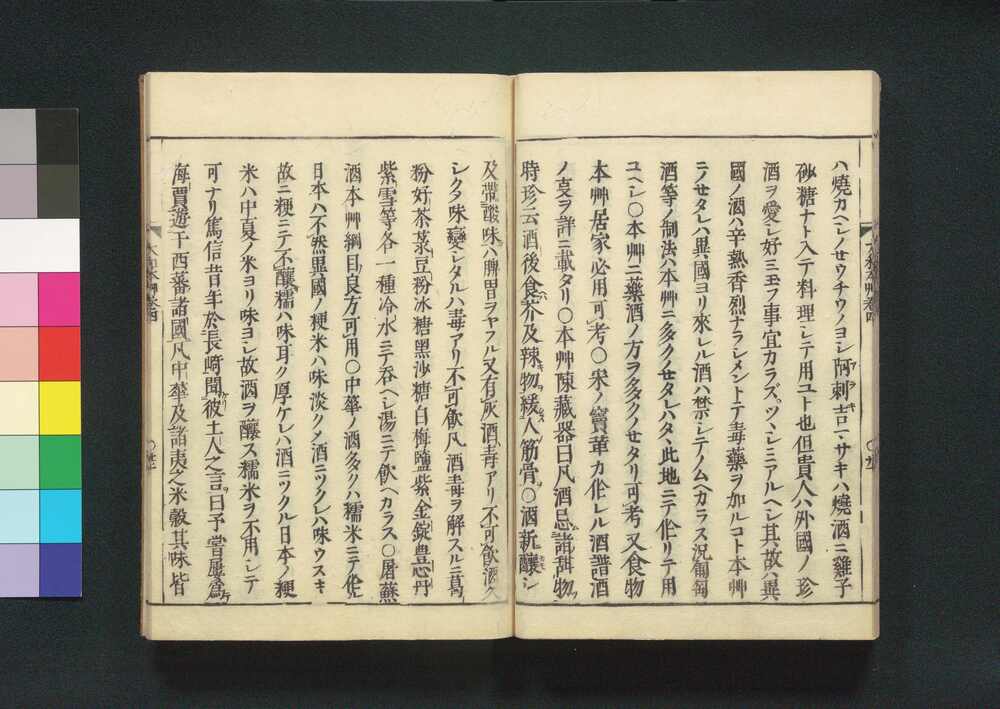 ハ燒カヘシノセウチウノヨシ阿剌吉ニ、サキハ燒酒ニ雞子
砂糖ナト入テ料理シテ用ユト也但貴人ハ外國ノ珍
酒ヲ愛シ好ミ玉フ事宜カラズツヽシミアルヘシ其故ハ異
國ノ酒ハ辛熱香烈ナラシメントテ毒藥ヲ加ルコト本艸
ニノセタレハ異國ヨリ來レル酒ハ禁シテノムヘカラス況葡萄
酒等ノ制法ハ本艸ニ多クノセタレハタヽ此地ニテ作リテ用
ユヘシ〇本艸ニ藥酒ノ方ヲ多クノセタリ可考又食物
本艸居家必用可考〇宋ノ竇苹カ作レル酒譜酒
ノ叓ヲ詳ニ載タリ〇本艸陳藏器曰凡酒忌諸甜物
時珍云酒後食芥及辣物緩人筋骨〇酒新釀シ
及帶酸味ハ脾胃ヲヤフル又有灰酒毒アリ不可飲酒久
シクメ味變シタルハ毒アリ不可飲凡酒毒ヲ解スルニ葛
粉好茶菉豆粉冰糖黑沙糖白梅鹽紫金錠豊心丹
紫雪等各一種冷水ニテ呑ヘシ湯ニテ飲ヘカラス〇屠蘇
酒本艸綱目良方可用〇中華ノ酒多クハ糯米ニテ作ル
日本ハ不然異國ノ粳米ハ味淡クメ酒ニツクレハ味ウスキ
故ニ粳ニテ不釀糯ハ味耳ク厚ケレハ酒ニツクル日本ノ粳
米ハ中夏ノ米ヨリ味ヨシ故酒ヲ釀ス糯米ヲ不用シテ
可ナリ篤信昔年於長崎聞彼土人之言曰予嘗屢爲
海賈遊于西蕃諸國凡中華及諸夷之米穀其味皆